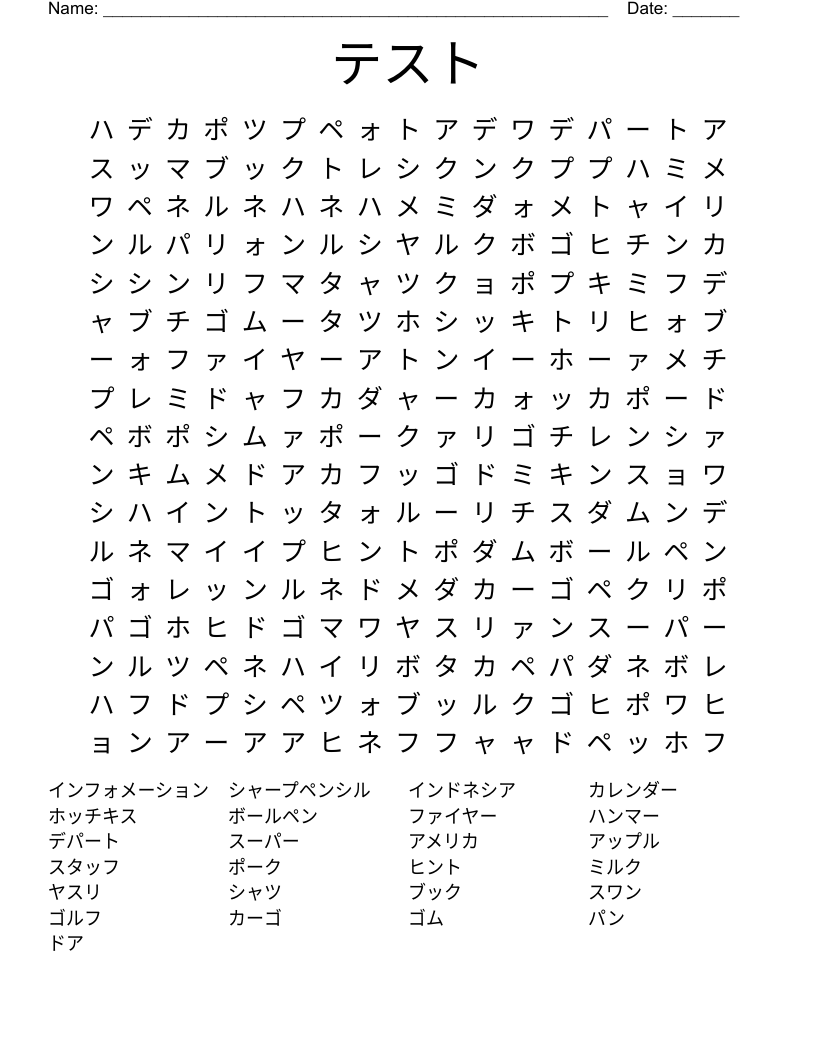 Name: _______________________________________________________ Date: _______
テスト
ハ デ カ ポ ツ プ ペ ォ ト ア デ ワ デ パ ー ト ア
ス ッ マ ブ ッ ク ト レ シ ク ン ク プ プ ハ ミ メ
ワ ペ ネ ル ネ ハ ネ ハ メ ミ ダ ォ メ ト ャ イ リ
ン ル パ リ ォ ン ル シ ヤ ル ク ボ ゴ ヒ チ ン カ
シ シ ン リ フ マ タ ャ ツ ク ョ ポ プ キ ミ フ デ
ャ ブ チ ゴ ム ー タ ツ ホ シ ッ キ ト リ ヒ ォ ブ
ー ォ フ ァ イ ヤ ー ア ト ン イ ー ホ ー ァ メ チ
プ レ ミ ド ャ フ カ ダ ャ ー カ ォ ッ カ ポ ー ド
ペ ボ ポ シ ム ァ ポ ー ク ァ リ ゴ チ レ ン シ ァ
ン キ ム メ ド ア カ フ ッ ゴ ド ミ キ ン ス ョ ワ
シ ハ イ ン ト ッ タ ォ ル ー リ チ ス ダ ム ン デ
ル ネ マ イ イ プ ヒ ン ト ポ ダ ム ボ ー ル ペ ン
ゴ ォ レ ッ ン ル ネ ド メ ダ カ ー ゴ ペ ク リ ポ
パ ゴ ホ ヒ ド ゴ マ ワ ヤ ス リ ァ ン ス ー パ ー
ン ル ツ ペ ネ ハ イ リ ボ タ カ ペ パ ダ ネ ボ レ
ハ フ ド プ シ ペ ツ ォ ブ ッ ル ク ゴ ヒ ポ ワ ヒ
ョ ン ア ー ア ア ヒ ネ フ フ ャ ャ ド ペ ッ ホ フ
インフォメーション シャープペンシル インドネシア カレンダー
ホッチキス ボールペン ファイヤー ハンマー
デパート スーパー アメリカ アップル
スタッフ ポーク ヒント ミルク
ヤスリ シャツ ブック スワン
ゴルフ カーゴ ゴム パン
ドア